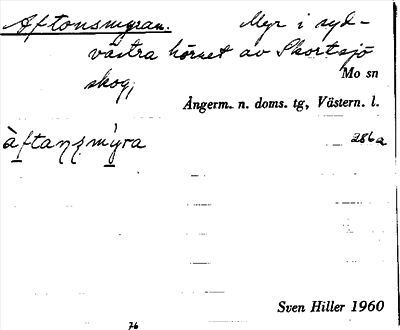 Aftonsmyran. Myr i syd-
västra hörnet av Skortsjö
skog;
Mo sn
Ångerm. n. doms. tg, Västern. l.
àftaṇṣmy̆ra 286a
Sven Hiller 1960
76